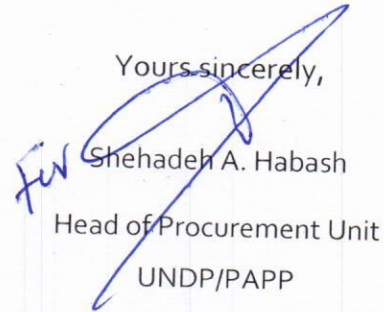 Yours sincerely,
For Shehadeh A. Habash
Head of Procurement Unit
UNDP/PAPP